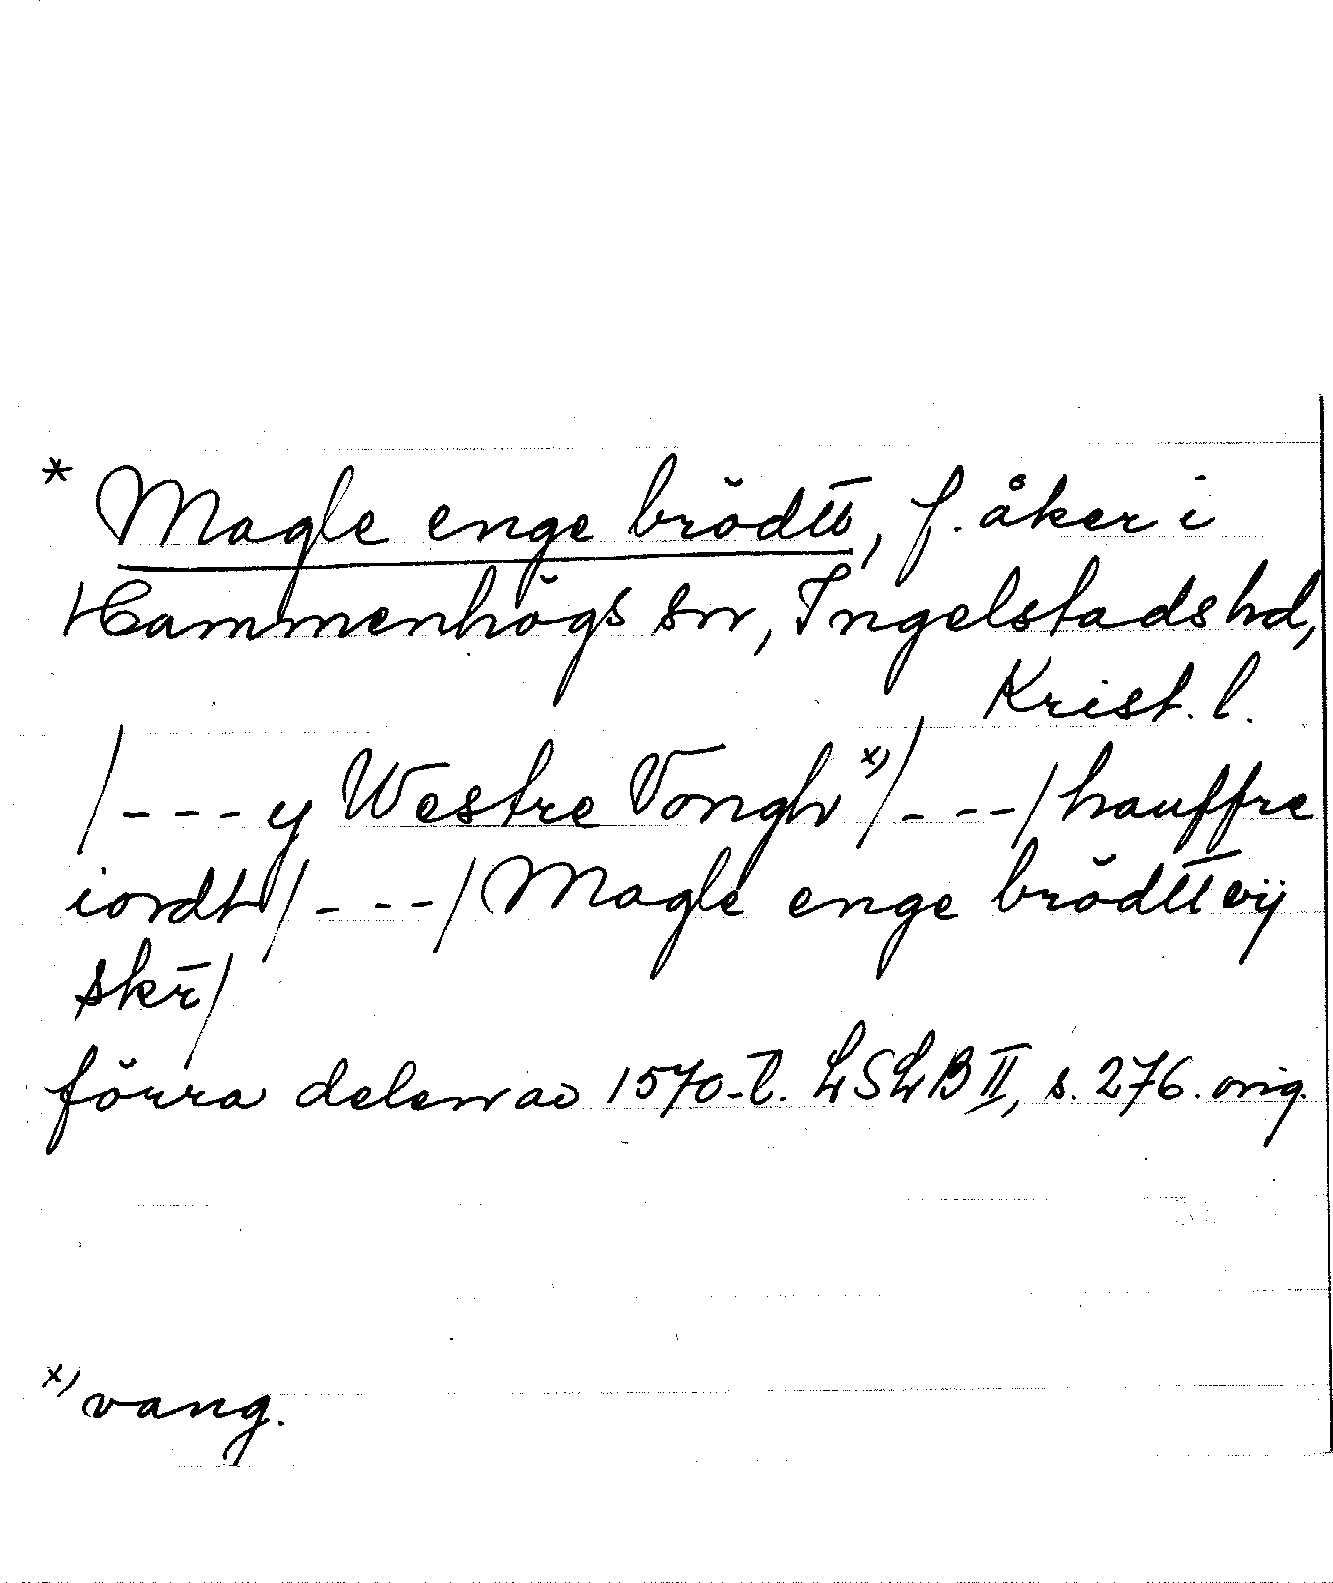 * Magle enge brödtt, f. åker i
Hammenhögs sn, Ingelstads hd,
Krist. l.
/---y Westre Vongh x)/---/hauffre
iordt/---/Magle enge brödtt vij
skr̄/
förra delen av 1570-t. LSLB II, s. 276. orig.
x) vang.